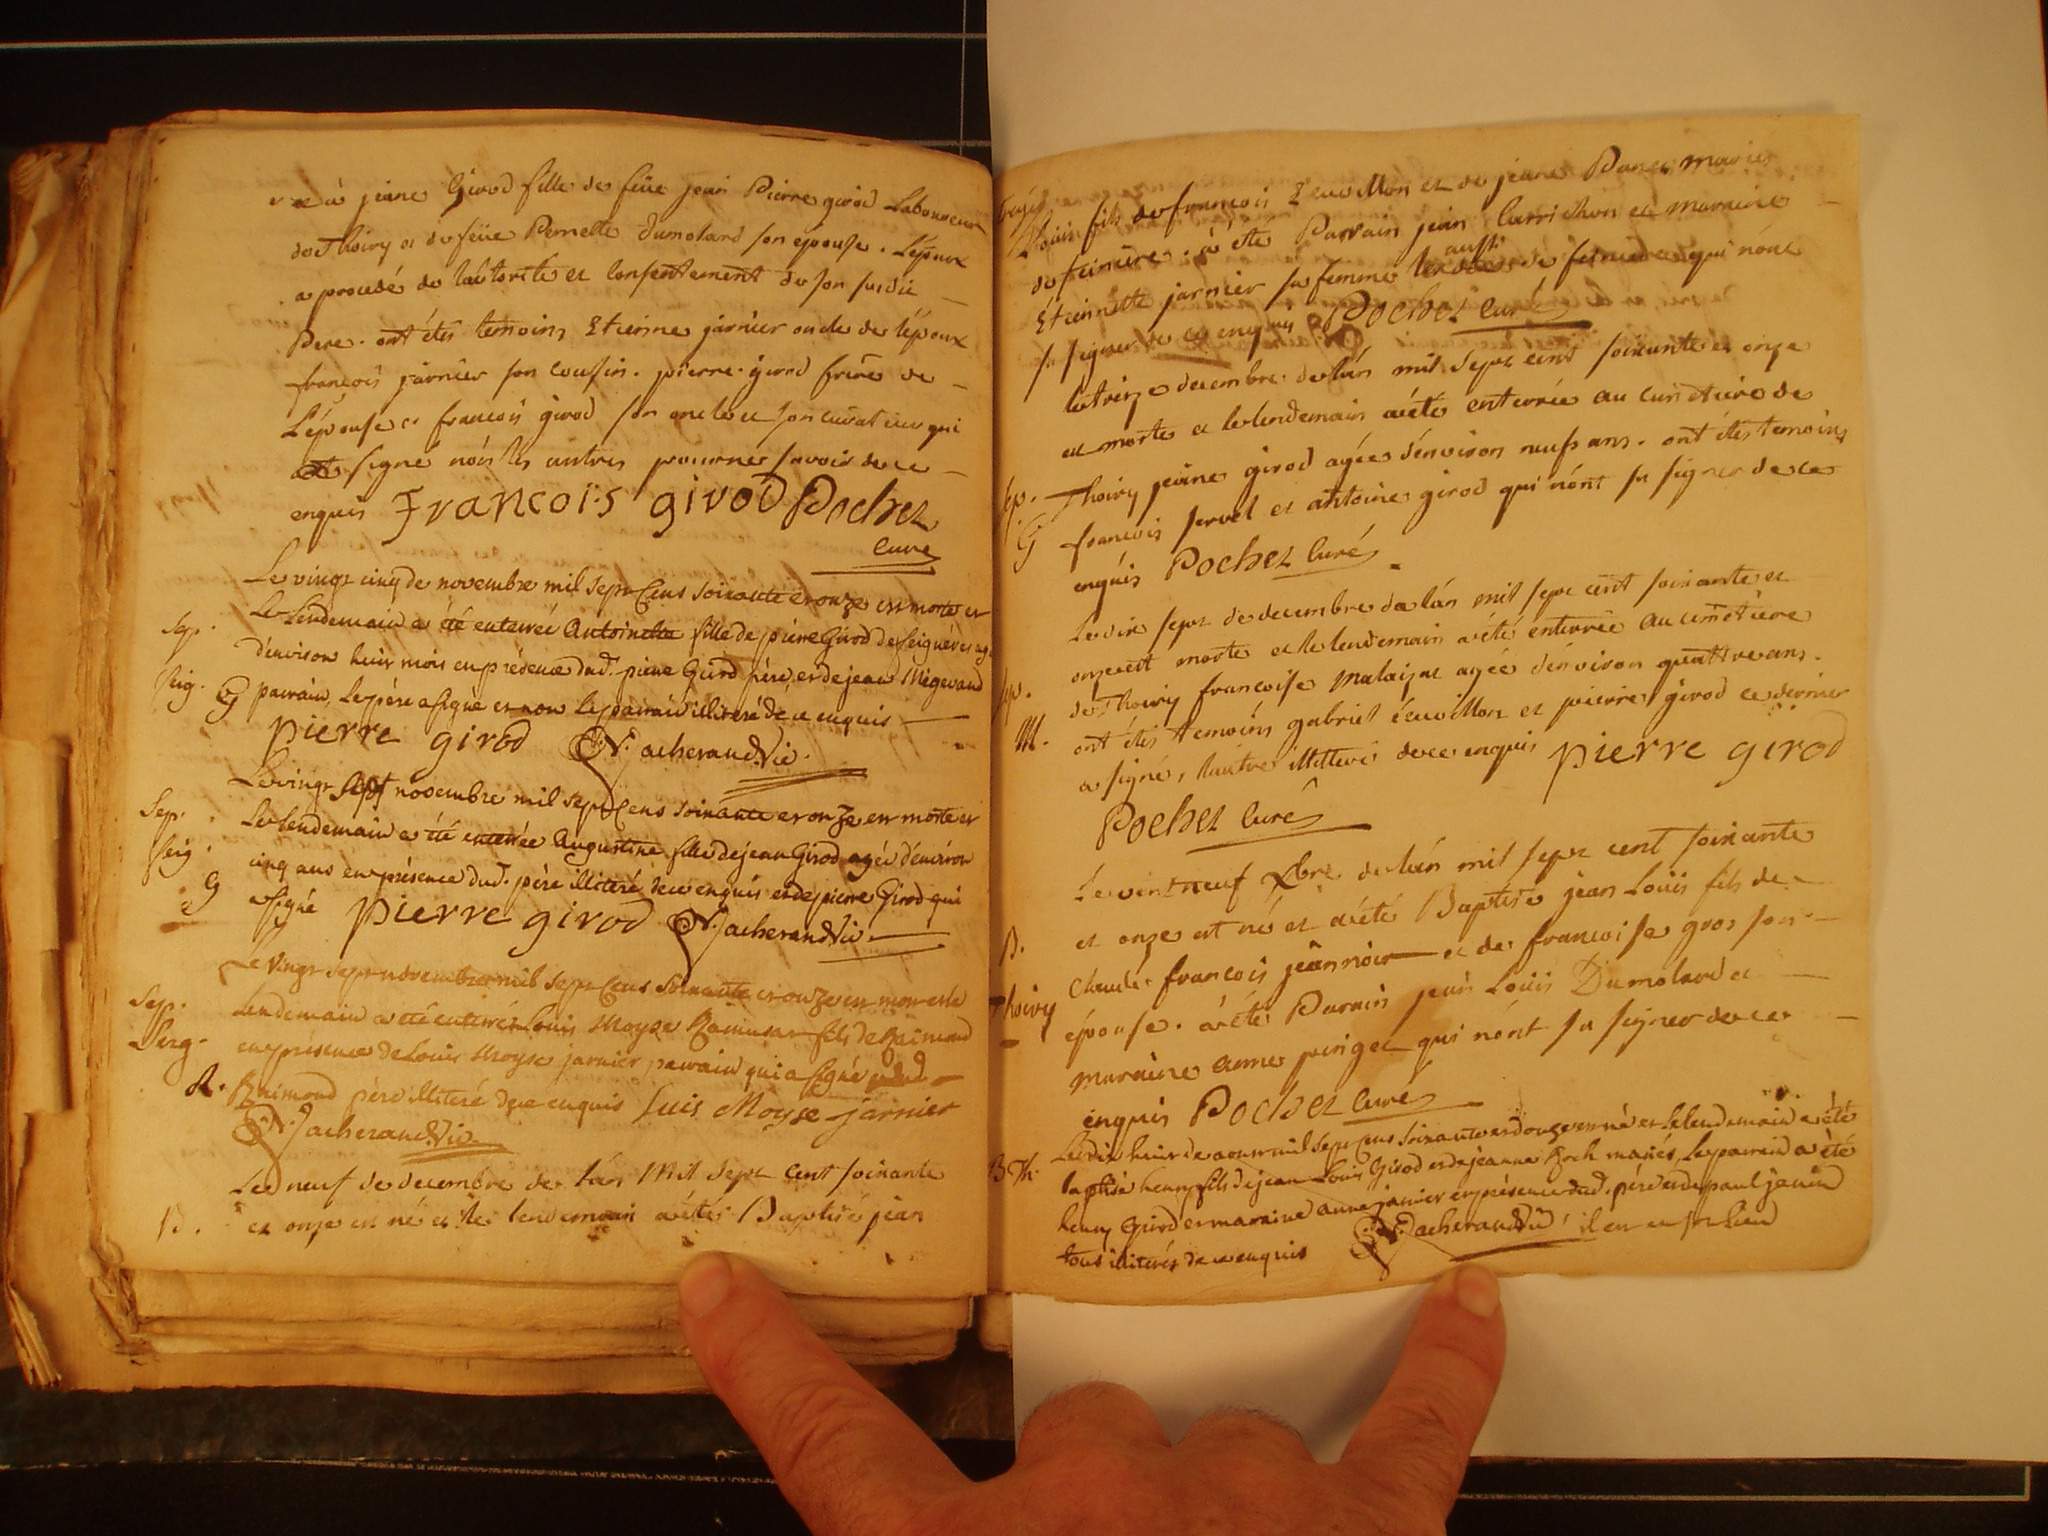 à jeane Girod fille de feüe jean Pierre girod Laboureur
de Thoiry et de feüe Pernette Dumolard son épouse. L'époux
a procedé de láutorité et consentement de son susdit
Pere. ont étés temoins Etienne jarnier oncle de lépoux
françois jarnier son cousin. pierre girod frère de
Lépouse et francois girod son oncle et son curateur qui
ont signé nón les autres pour ne savoir de ce
enquis Francois girod Pochet
Curé
Le vingt cinq de novembre mil sept Cens soixante et onze est morte et
Sep. Le Lendemain a été enterreé Antoinette fille de piere Girod de Seignéres agée
d'environ huit mois en présence dud. piere Girod père, et de jean Mégevand
Seig. G parrain, le père a signé et non le parrain illiteré de ce enquis
pierre girod N. Jacherand Vic.
Le vingt sept novembre mil sept Cens soixante et onze est morte et
Sep. Le lendemain a été enterrée Augustine fille de jean Girod agée d'environ
Seig. cinq ans en présence dud. père illiteré de ce enquis et de pierre Girod qui
G a signé pierre girod N. Jacherand Vic.
Le vingt sept novembre mil sept Cens soixante et onze est mort et le
Sep. Lendemain a été enterré Louis Moyse fils de Raimond
Seig. en présence de Louis Moyse jarnier, parrain qui a signé
R. Raimond père illiteré de ce enquis Luis Moyse jarnier
N. Jacherand Vic.
Le neuf de decembre de lán Mil sept cent soixante
B. et onze est né et le lendemain aétés Baptisé jean
Loüis fils de françois Ecuvillon et de jeane Panet mariés
de feiniere. à été Parrain jean Carrichon et maraine
aussi
Étiennette jarnier sa femme de feiniere qui nónt
su signer de ce enquis Pochet Curé
le treize decembre de lán mil sept cent soixante et onze
est morte et le lendemain aété enterrée au cimetiere de
Sep. Thoiry jeane girod agée dénviron neuf ans. ont étés temoins
G francois servet et antoine girod qui nónt su signer de ce
enquis Pochet Curé
Le dix sept de decembre de lán mil sept cent soixante et
onze est morte et le lendemain aété enterrée au cimetière
Sep. de Thoiry francoise Malaizat agée dénviron quattre ans.
M. ont étés temoins gabriel écuvillon et pierre girod ce dernier
a signé, lautre illitteré de ce enquis pierre girod
Pochet Curé
Le vint neuf Xbre de lán mil sept cent soixante
B. et onze est né et aété Baptisé jean Loüis fils de
Claude françois jeannoir et de francoise gros son
Thoiry épouse. aété Parain jean Loüis Dumolard et
maraine anne pinget qui nónt su signer de ce
enquis Pochet Curé
Le dix huit de aoust mil sept Cens soixante et douze est né et le lendemain a été
B Th. baptisé henry fils de jean Louis Girod et de jeanne Zoch mariés, Le parrain a été
henry Girod et marraine anne janier en présence dud. père et de paul janin
tous illiterés de ce enquis N. Jacherand Vic